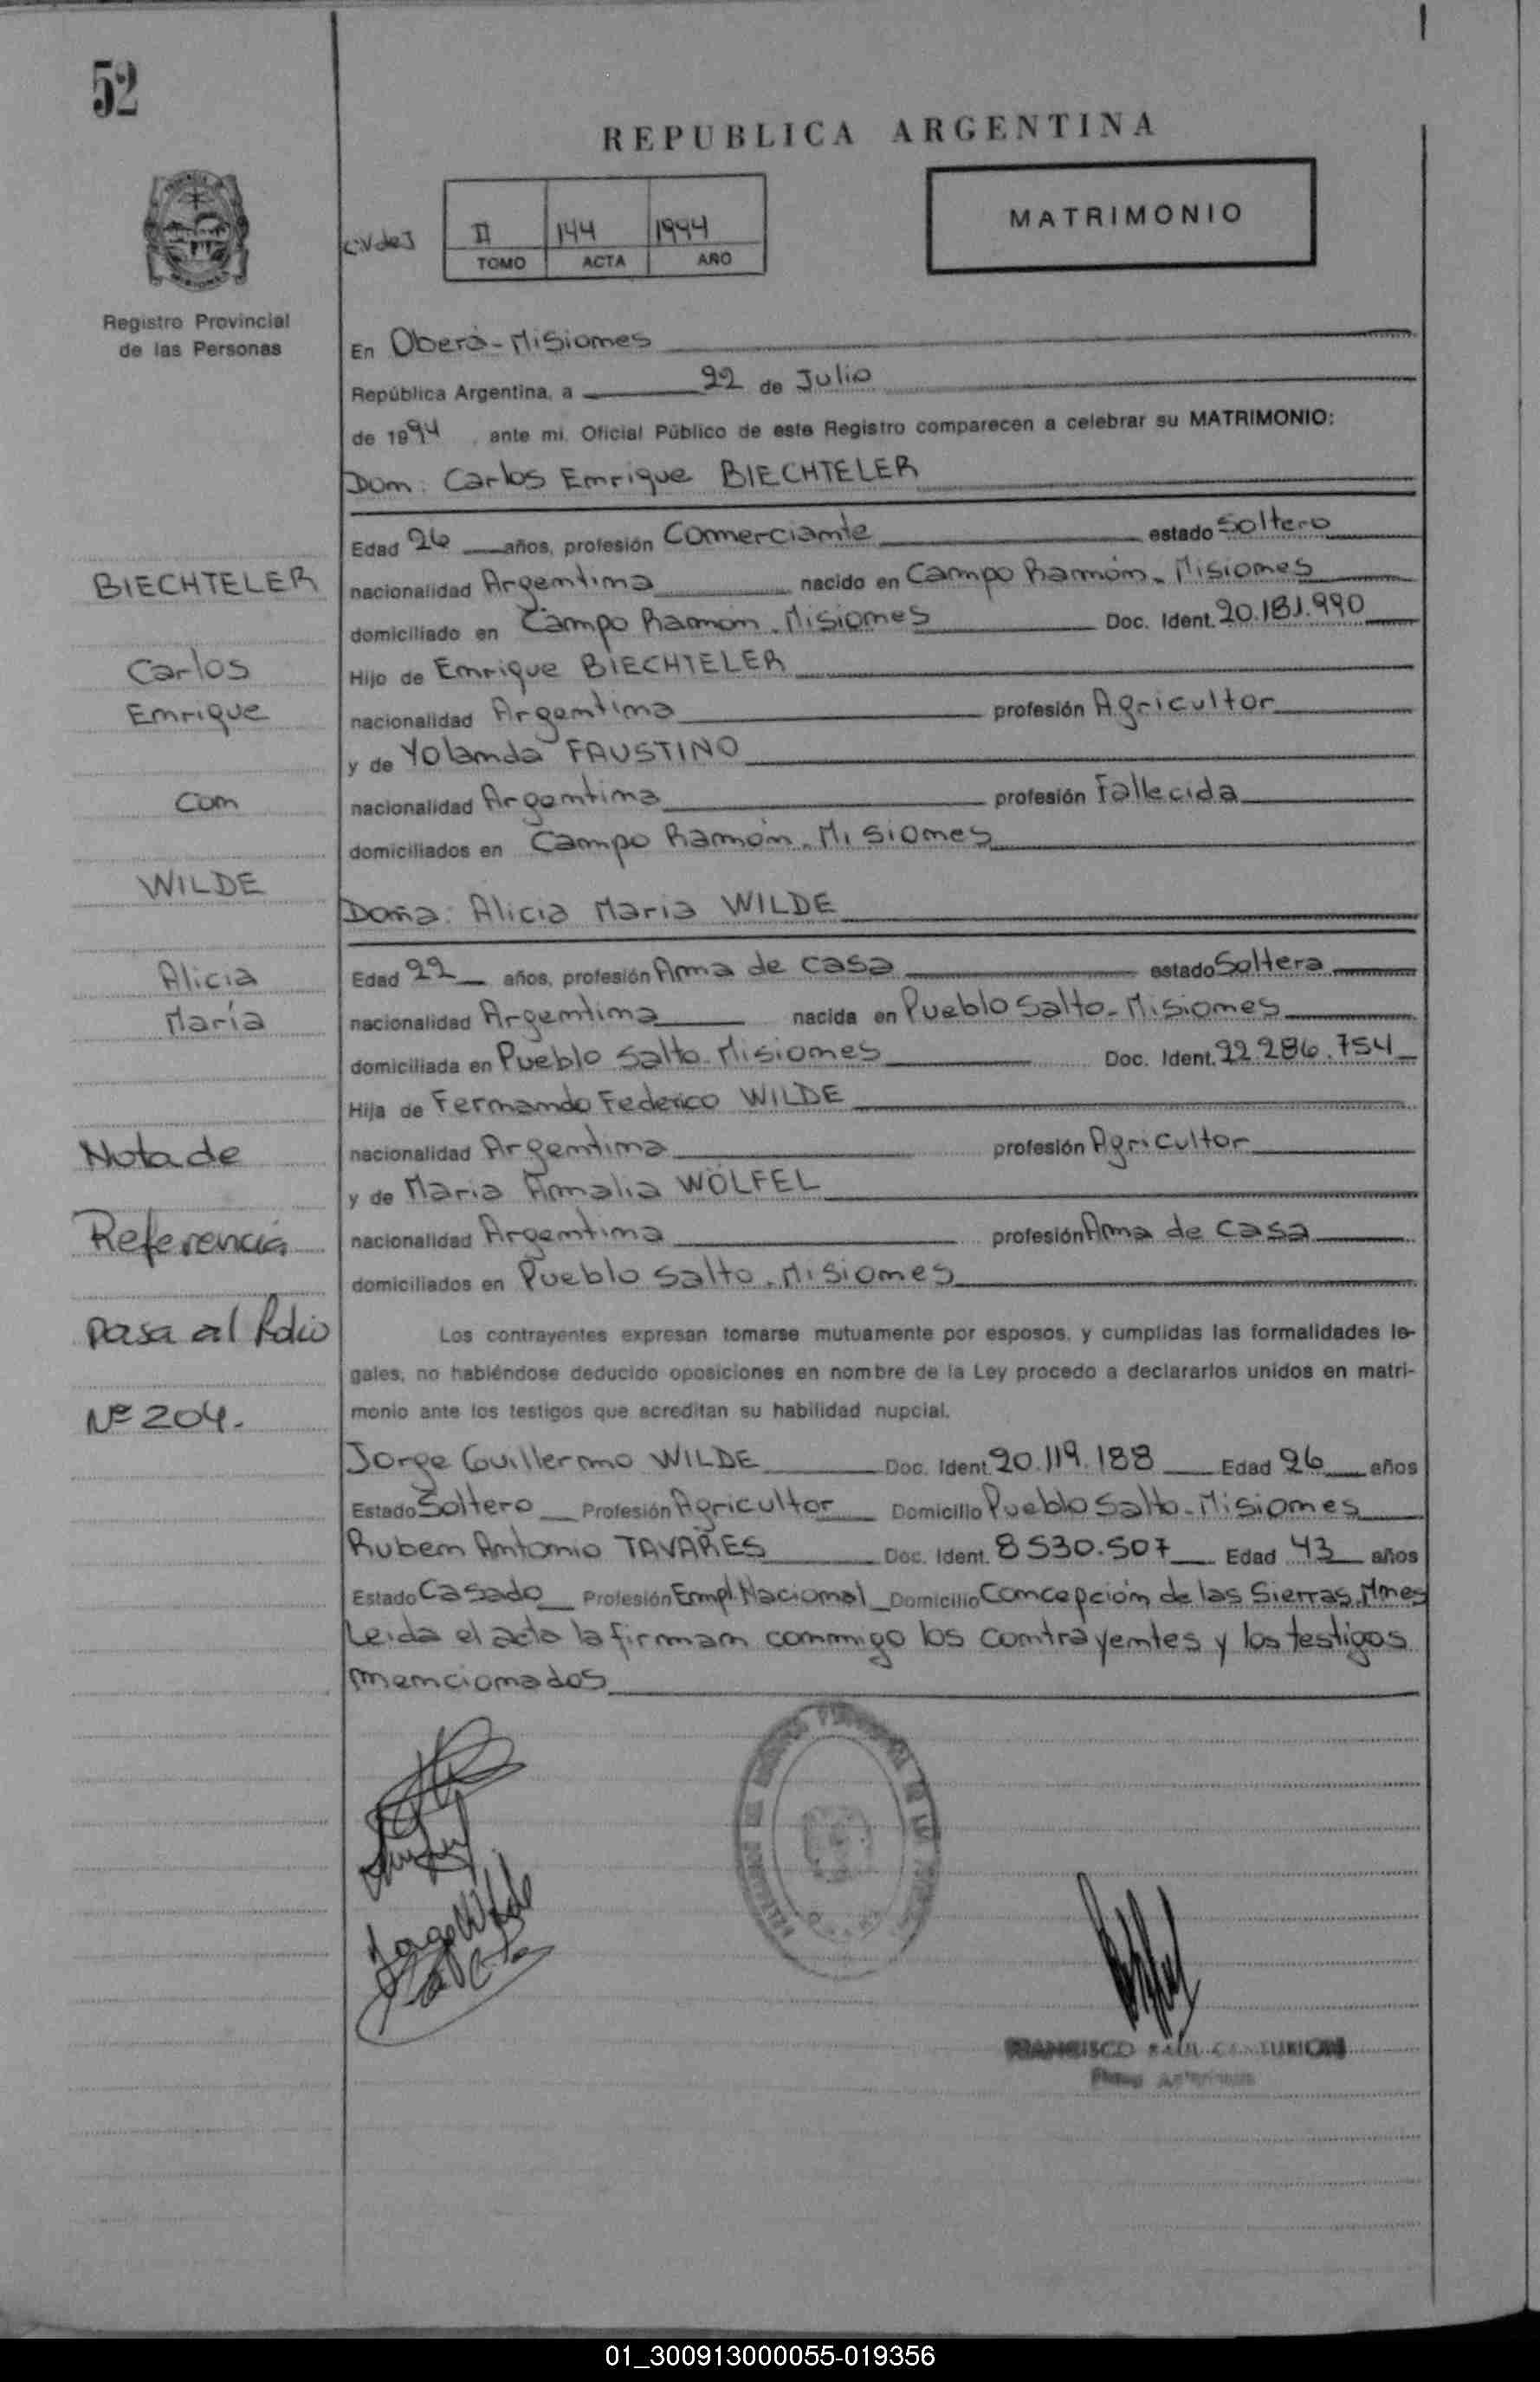 52
REPUBLICA ARGENTINA
MATRIMONIO
II 144 1994
TOMO ACTA AÑO
Registro Provincial
de las Personas
En Oberá-Misiones
República Argentina, a 22 de Julio
de 1994, ante mi, Oficial Público de este Registro comparecen a celebrar su MATRIMONIO:
Don: Carlos Enrique BIECHTELER
Edad 26 años, profesión Comerciante estado Soltero
BIECHTELER
nacionalidad Argentina nacido en Campo Ramón-Misiones
domiciliado en Campo Ramón-Misiones Doc. Ident. 20.181.990
Carlos
Hijo de Enrique BIECHTELER
Enrique
nacionalidad Argentina profesión Agricultor
y de Yolanda FAUSTINO
con
nacionalidad Argentina profesión Fallecida
domiciliados en Campo Ramón-Misiones
WILDE
Doña: Alicia Maria WILDE
Alicia
Edad 22 años, profesión Ama de casa estado Soltera
María
nacionalidad Argentina nacida en Pueblo Salto-Misiones
domiciliada en Pueblo Salto-Misiones Doc. Ident. 22.286.754
Hija de Fernando Federico WILDE
Nota de
nacionalidad Argentina profesión Agricultor
y de Maria Amalia WÖLFEL
Referencia
nacionalidad Argentina profesión Ama de casa
domiciliados en Pueblo Salto-Misiones
pasa al Folio
Los contrayentes expresan tomarse mutuamente por esposos, y cumplidas las formalidades le-
gales, no habiéndose deducido oposiciones en nombre de la Ley procedo a declararlos unidos en matri-
Nº 204.
monio ante los testigos que acreditan su habilidad nupcial.
Jorge Guillermo WILDE Doc. Ident. 20.119.188 Edad 26 años
Estado Soltero Profesión Agricultor Domicilio Pueblo Salto-Misiones
Ruben Antonio TAVARES Doc. Ident. 8530.507 Edad 43 años
Estado Casado Profesión Empl. Nacional Domicilio Concepción de las Sierras, Mnes
Leida el acta la firman conmigo los contrayentes y los testigos
mencionados
Jorge Wilde
FRANCISCO RAUL CENTURION
01_300913000055-019356